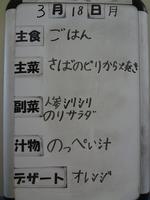 3月18日月
主食 ごはん
主菜 さばのピリから焼き
副菜 人参シリシリ
のりサラダ
汁物 のっぺい汁
デザート オレンジ